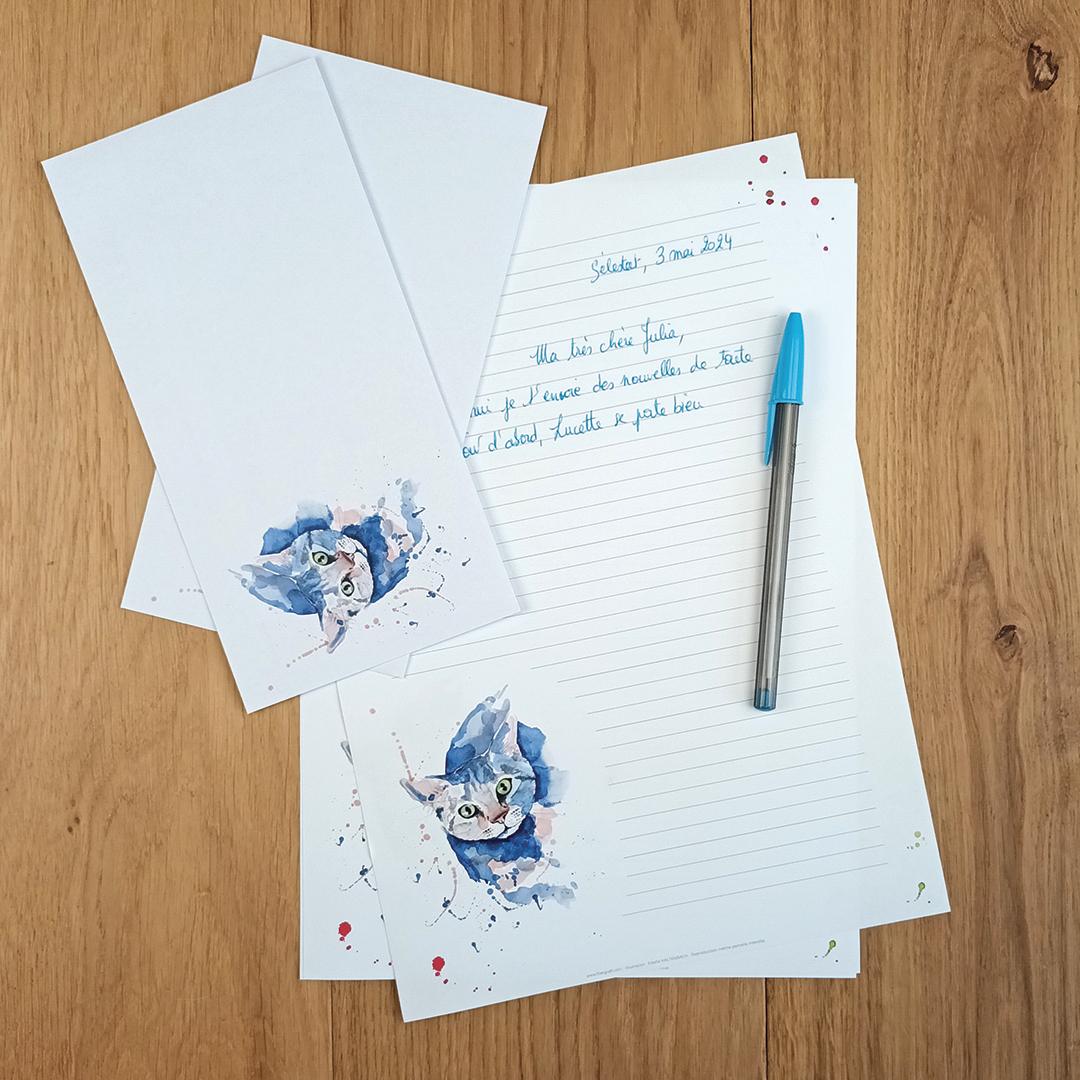 Sélestat, 3 mai 2024
Ma très chère Julia,
je t'envoie des nouvelles de toute
d'abord, Lucette se porte bien